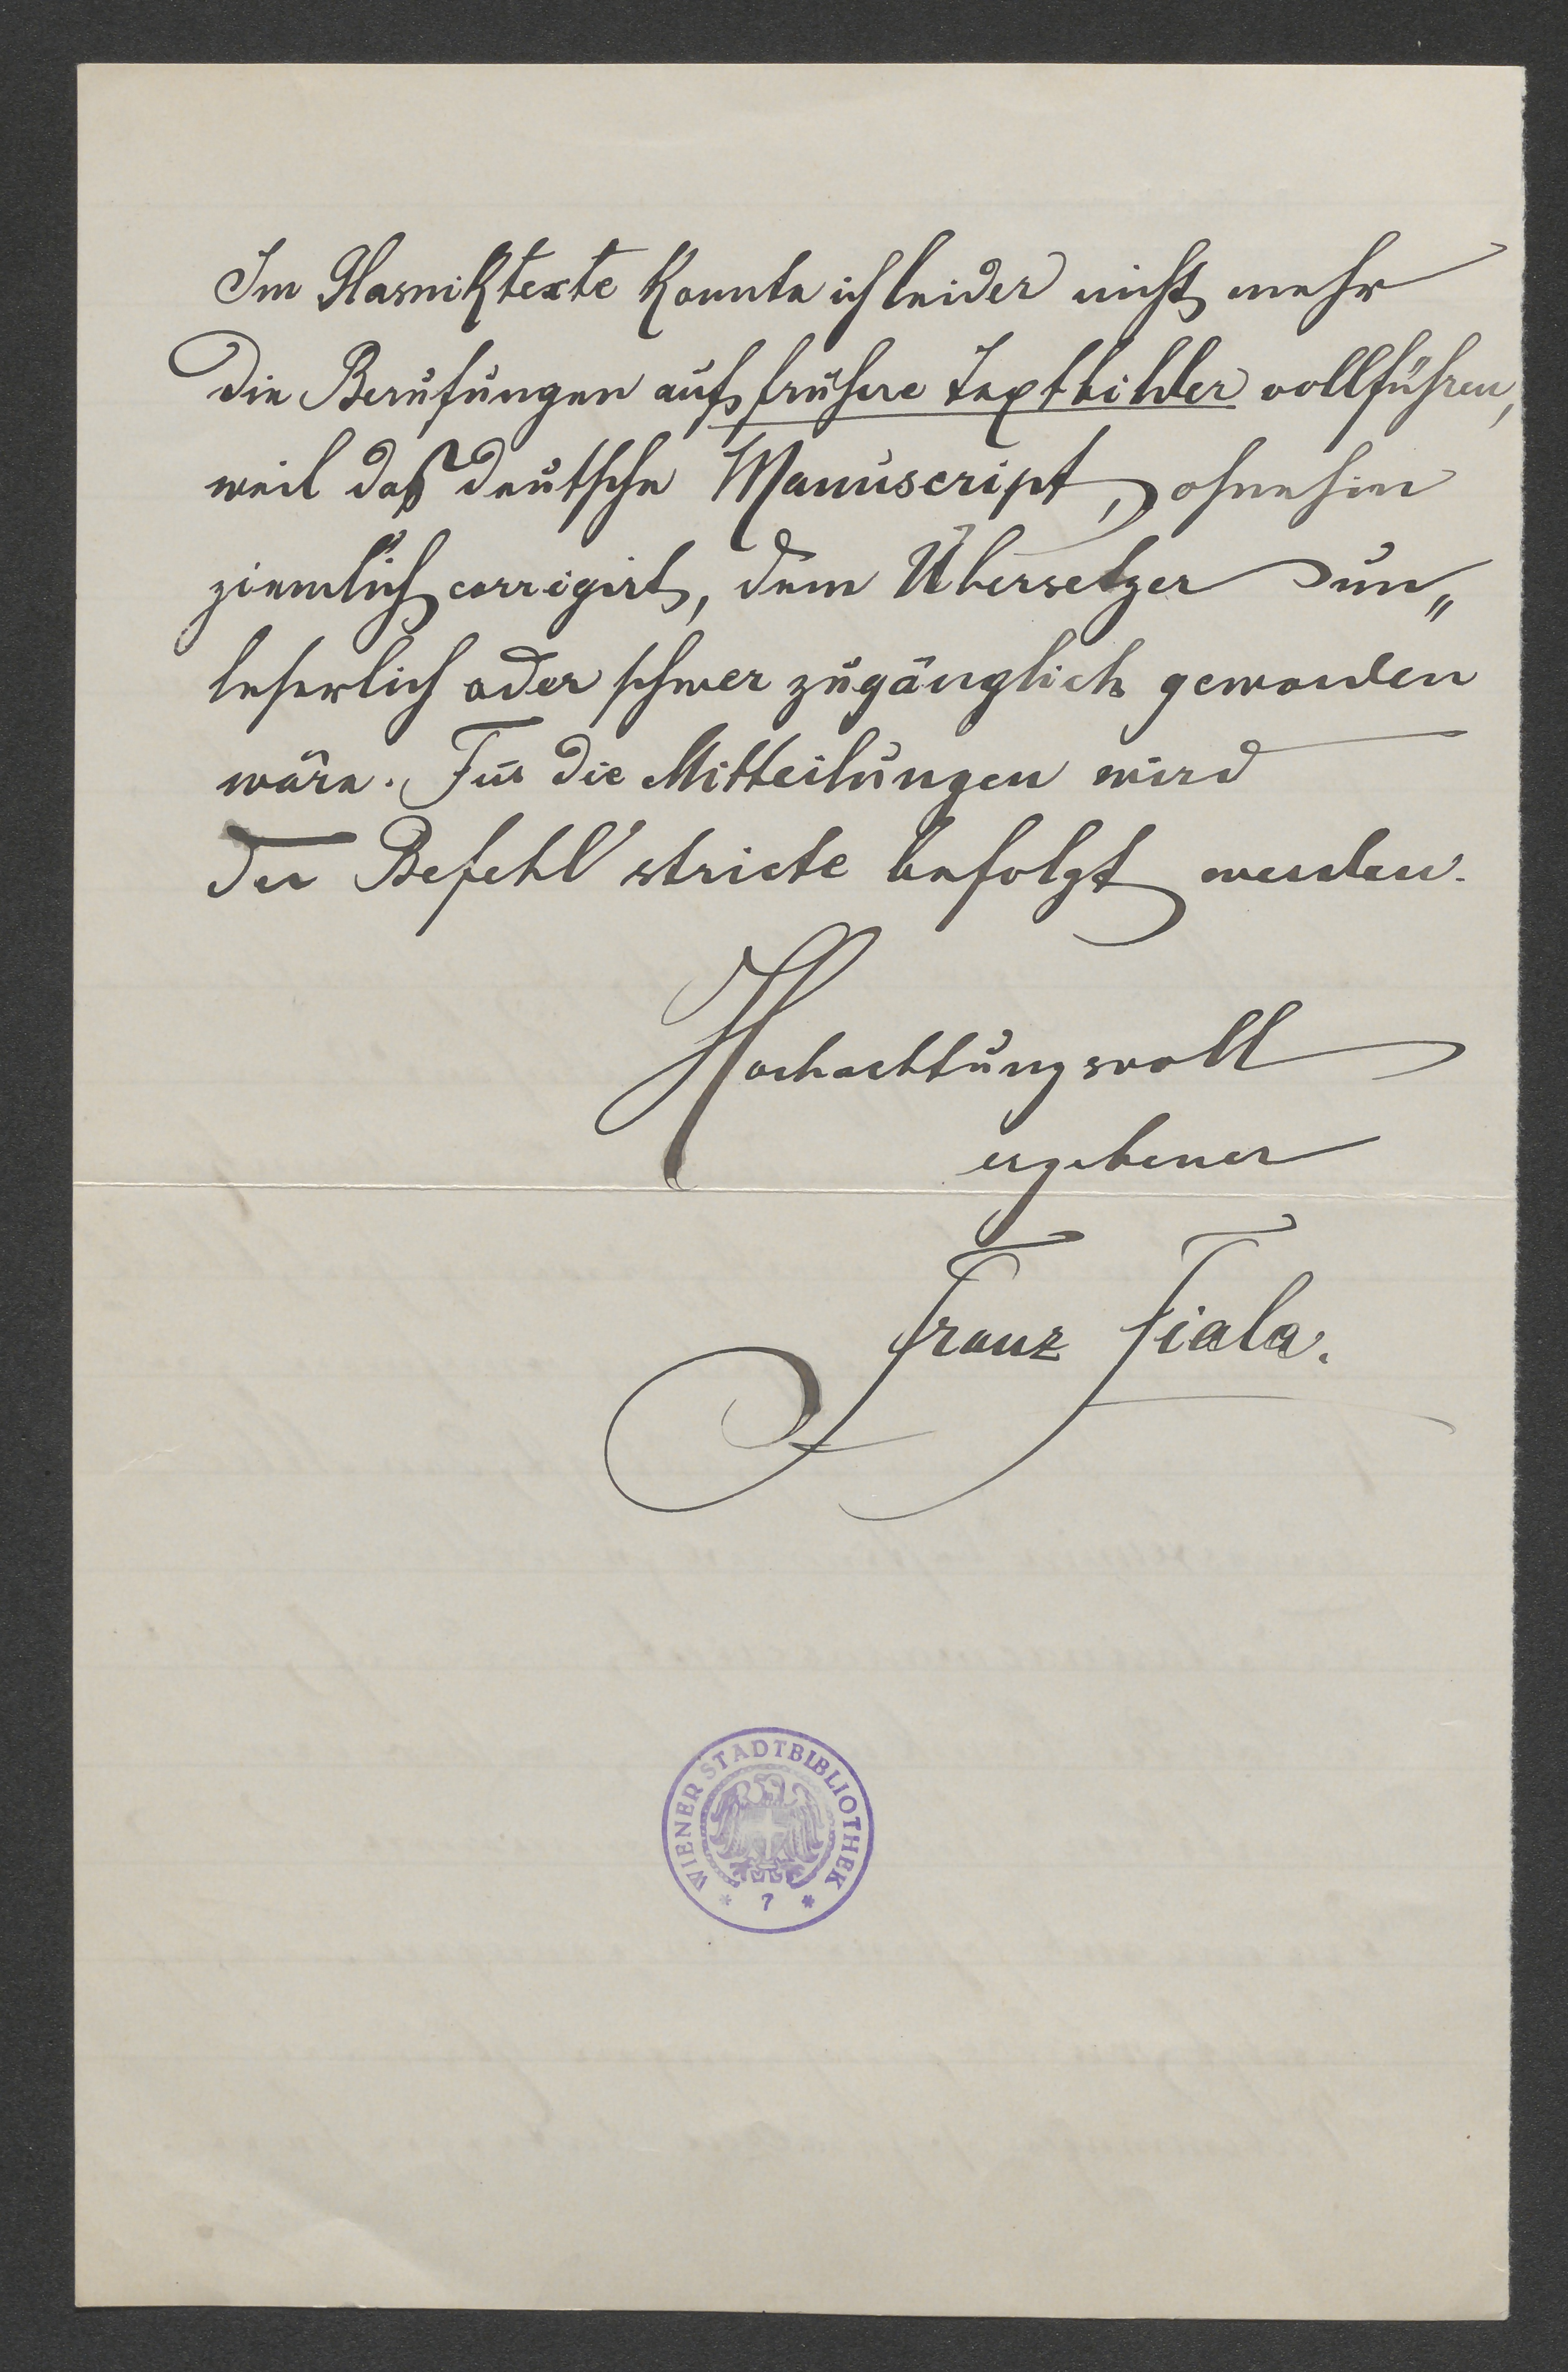 Im Glasniktexte konnte ich leider nicht mehr
die Berufungen auf frühere Textbilder vollführen,
weil das deutsche Manuscript, ohnehin
ziemlich corrigirt, dem Übersetzer un„
leserlich oder schwer zugänglich geworden
wäre. Für die Mitteilungen wird
der Befehl stricte befolgt werden.
Hochachtungsvoll
ergebener
Franz Fiala.
WIENER STADTBIBLIOTHEK
* 7 *